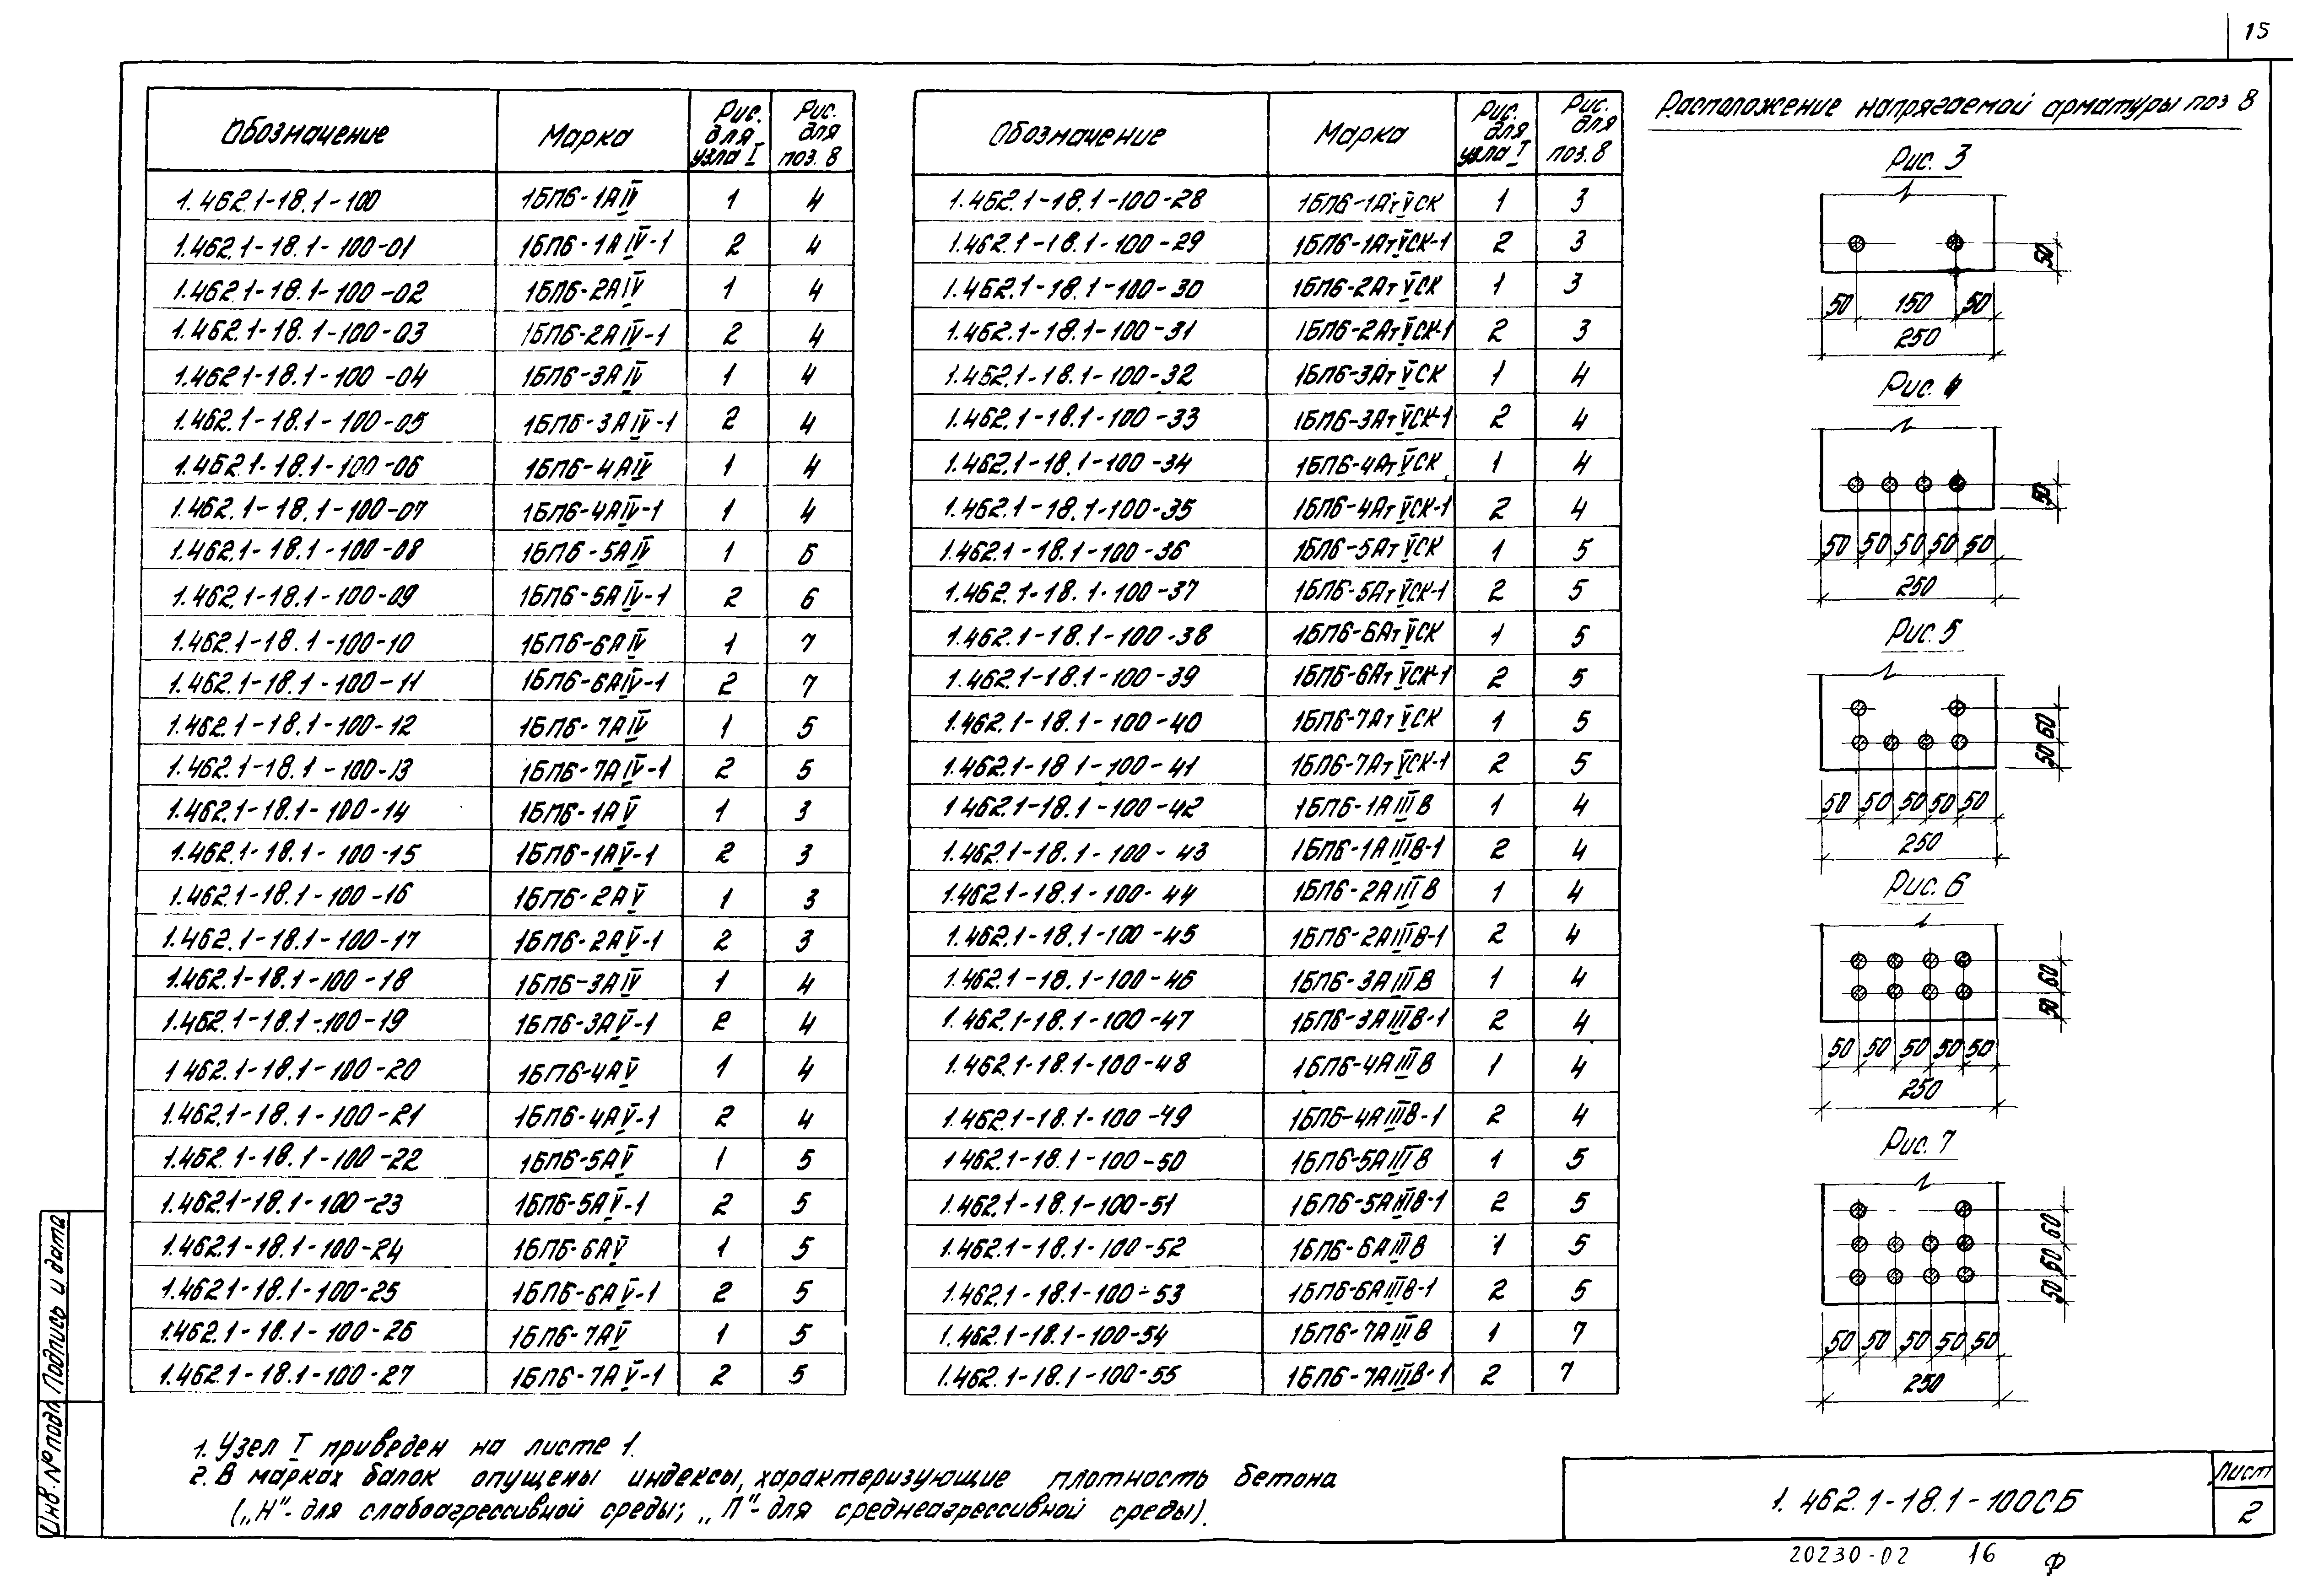 15
Обозначение Марка Рис. для узла I Рис. для поз. 8
1.462.1-18.1-100 1БП6-1АIV 1 4
1.462.1-18.1-100-01 1БП6-1АIV-1 2 4
1.462.1-18.1-100-02 1БП6-2АIV 1 4
1.462.1-18.1-100-03 1БП6-2АIV-1 2 4
1.462.1-18.1-100-04 1БП6-3АIV 1 4
1.462.1-18.1-100-05 1БП6-3АIV-1 2 4
1.462.1-18.1-100-06 1БП6-4АIV 1 4
1.462.1-18.1-100-07 1БП6-4АIV-1 1 4
1.462.1-18.1-100-08 1БП6-5АIV 1 6
1.462.1-18.1-100-09 1БП6-5АIV-1 2 6
1.462.1-18.1-100-10 1БП6-6АIV 1 7
1.462.1-18.1-100-11 1БП6-6АIV-1 2 7
1.462.1-18.1-100-12 1БП6-7АIV 1 5
1.462.1-18.1-100-13 1БП6-7АIV-1 2 5
1.462.1-18.1-100-14 1БП6-1АV 1 3
1.462.1-18.1-100-15 1БП6-1АV-1 2 3
1.462.1-18.1-100-16 1БП6-2АV 1 3
1.462.1-18.1-100-17 1БП6-2АV-1 2 3
1.462.1-18.1-100-18 1БП6-3АIV 1 4
1.462.1-18.1-100-19 1БП6-3АV-1 2 4
1 462.1-18.1-100-20 1БП6-4АV 1 4
1.462.1-18.1-100-21 1БП6-4АV-1 2 4
1.462.1-18.1-100-22 1БП6-5АV 1 5
1.462.1-18.1-100-23 1БП6-5АV-1 2 5
1.462.1-18.1-100-24 1БП6-6АV 1 5
1.462.1-18.1-100-25 1БП6-6АV-1 2 5
1.462.1-18.1-100-26 1БП6-7АV 1 5
1.462.1-18.1-100-27 1БП6-7АV-1 2 5
Обозначение Марка Рис. для узла I Рис. для поз. 8
1.462.1-18.1-100-28 1БП6-1АтVСК 1 3
1.462.1-18.1-100-29 1БП6-1АтVСК-1 2 3
1.462.1-18.1-100-30 1БП6-2АтVСК 1 3
1.462.1-18.1-100-31 1БП6-2АтVСК-1 2 3
1.462.1-18.1-100-32 1БП6-3АтVСК 1 4
1.462.1-18.1-100-33 1БП6-3АтVСК-1 2 4
1.462.1-18.1-100-34 1БП6-4АтVСК 1 4
1.462.1-18.1-100-35 1БП6-4АтVСК-1 2 4
1.462.1-18.1-100-36 1БП6-5АтVСК 1 5
1.462.1-18.1-100-37 1БП6-5АтVСК-1 2 5
1.462.1-18.1-100-38 1БП6-6АтVСК 1 5
1.462.1-18.1-100-39 1БП6-6АтVСК-1 2 5
1.462.1-18.1-100-40 1БП6-7АтVСК 1 5
1.462.1-18 1-100-41 1БП6-7АтVСК-1 2 5
1 462.1-18.1-100-42 1БП6-1АIIIВ 1 4
1.462.1-18.1-100-43 1БП6-1АIIIВ-1 2 4
1.462.1-18.1-100-44 1БП6-2АIIIВ 1 4
1.462.1-18.1-100-45 1БП6-2АIIIВ-1 2 4
1.462.1-18.1-100-46 1БП6-3АIIIВ 1 4
1.462.1-18.1-100-47 1БП6-3АIIIВ-1 2 4
1.462.1-18.1-100-48 1БП6-4АIIIВ 1 4
1.462.1-18.1-100-49 1БП6-4АIIIВ-1 2 4
1 462.1-18.1-100-50 1БП6-5АIIIВ 1 5
1.462.1-18.1-100-51 1БП6-5АIIIВ-1 2 5
1.462.1-18.1-100-52 1БП6-6АIIIВ 1 5
1.462.1-18.1-100-53 1БП6-6АIIIВ-1 2 5
1.462.1-18.1-100-54 1БП6-7АIIIВ 1 7
1.462.1-18.1-100-55 1БП6-7АIIIВ-1 2 7
Расположение напрягаемой арматуры поз 8
Рис. 3
50
50 150 50
250
Рис. 4
50
50 50 50 50 50
250
Рис. 5
50 60
50 50 50 50 50
250
Рис. 6
50 60
50 50 50 50 50
250
Рис. 7
50 60 60
50 50 50 50 50
250
1. Узел I приведен на листе 1.
2. В марках балок опущены индексы, характеризующие плотность бетона
(„Н"- для слабоагрессивной среды; „П"- для среднеагрессивной среды).
Инв. № подл Подпись и дата
1. 462.1-18.1-100СБ
Лист
2
20230-02 16 Ф